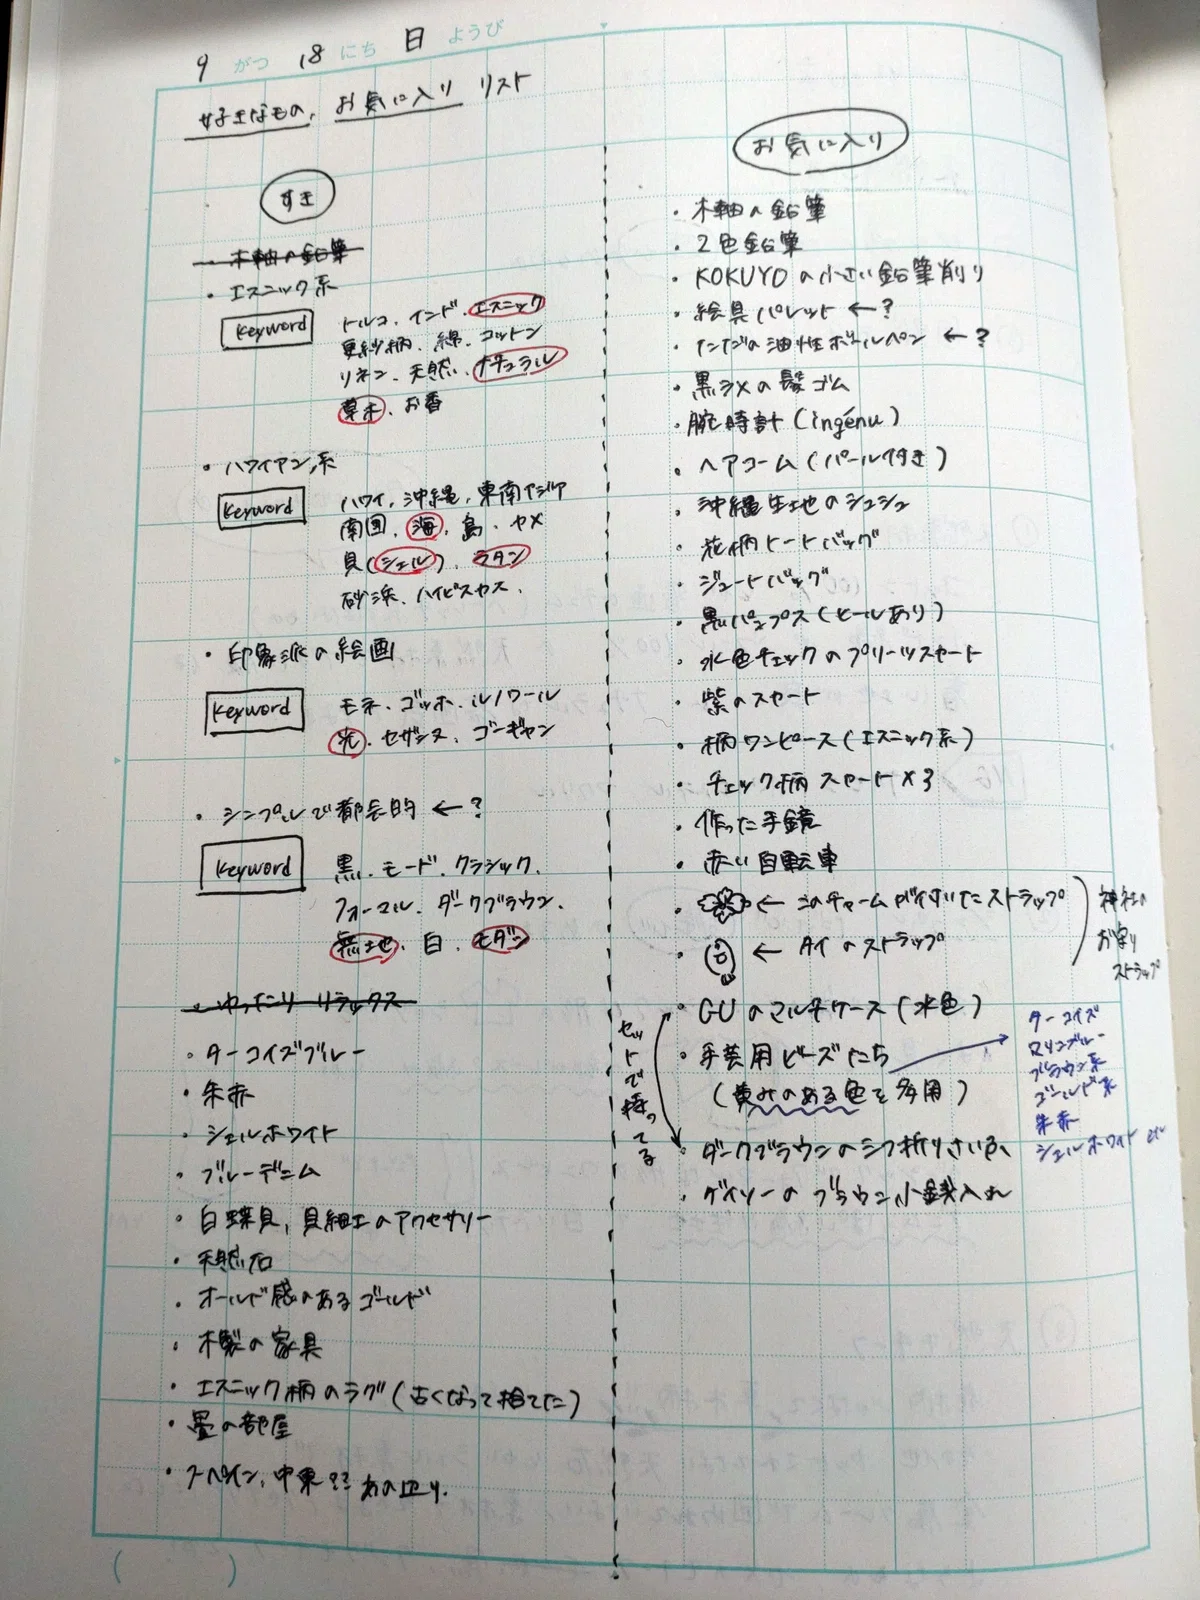 9 がつ 18 にち 日 ようび
好きなもの、お気に入り リスト
すき
・木軸の鉛筆
・エスニック系
Keyword
トルコ、インド、エスニック
更紗柄、綿、コットン
リネン、天然、ナチュラル
草木、お香
・ハワイアン系
Keyword
ハワイ、沖縄、東南アジア
南国、海、島、ヤメ
貝(シェル)、ラタン
砂浜、ハイビスカス、
・印象派の絵画
Keyword
モネ、ゴッホ、ルノワール
光、セザンヌ、ゴーギャン
・シンプルで都会的 ← ?
Keyword
黒、モード、クラシック、
フォーマル、ダークブラウン、
無地、白、モダン
・ゆったり リラックス
・ターコイズブルー
・朱赤
・シェルホワイト
・ブルーデニム
・白蝶貝、貝細工のアクセサリー
・天然石
・オールド感のあるゴールド
・木製の家具
・エスニック柄のラグ(古くなって捨てた)
・畳の部屋
・スペイン、中東?? あの辺り、
お気に入り
・木軸の鉛筆
・2色鉛筆
・KOKUYOの小さい鉛筆削り
・絵具パレット ← ?
・ただの油性ボールペン ← ?
・黒ラメの髪ゴム
・腕時計(ingénu)
・ヘアコーム(パール付き)
・沖縄生地のシュシュ
・花柄トートバッグ
・ジュートバッグ
・黒パンプス(ヒールあり)
・水色チェックのプリーツスカート
・紫のスカート
・柄ワンピース(エスニック系)
・チェック柄スカート×3
・作った手鏡
・赤い自転車
・ ← このチャームが付いたストラップ
・ ← タイのストラップ
神社の
お守り
ストラップ
・GUのマルチケース(水色)
・手芸用ビーズたち
(黄みのある色を多用)
・ダークブラウンの三つ折りさいふ
・ダイソーのブラウン小銭入れ
セットで持ってる
ターコイズ
マリンブルー
ブラウン系
ゴールド系
朱赤
シェルホワイト